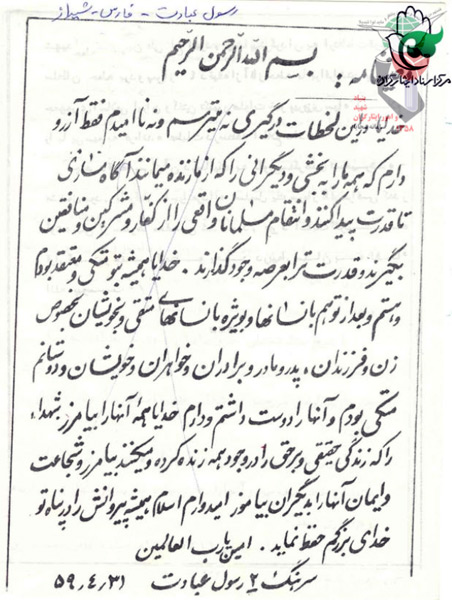 رسول عبادت - فارس - شیراز
بسم الله الرحمن الرحیم
مرکز اسناد ایثارگران
خدایا درین لحظات درگیری نه میترسم و نه ناامیدم فقط آرزو
دارم که همه ما را ببخشی و دیگرانی را که از ما زنده میمانند آگاه سازی
تا قدرت پیدا کنند و انتقام مسلمانان واقعی را از کفار و مشرکین و منافقین
بگیرند و قدرت ترا بعرصه وجود گذارند . خدایا همیشه بتو متکی و معتقد بودم
و هستم و بعد از تو هم بانسانها و بویژه بانسانهای متقی و خویشان بخصوص
زن و فرزندان ، پدر و مادر و برادران و خواهران و خویشان و دوستانم
متکی بودم و آنها را دوست داشتم و دارم خدایا همهٔ آنها را بیامرز شهداء
را که زندگی حقیقی و برحق را در وجود همه زنده کرده و میکنند بیامرز و شجاعت
و ایمان آنها را بدیگران بیاموز امیدوارم اسلام همیشه پیروانش را در پناه تو
خدای بزرگم حفظ نماید . امین یا رب العالمین
سرهنگ ۲ رسول عبادت ۵۹٫۴٫۳۱